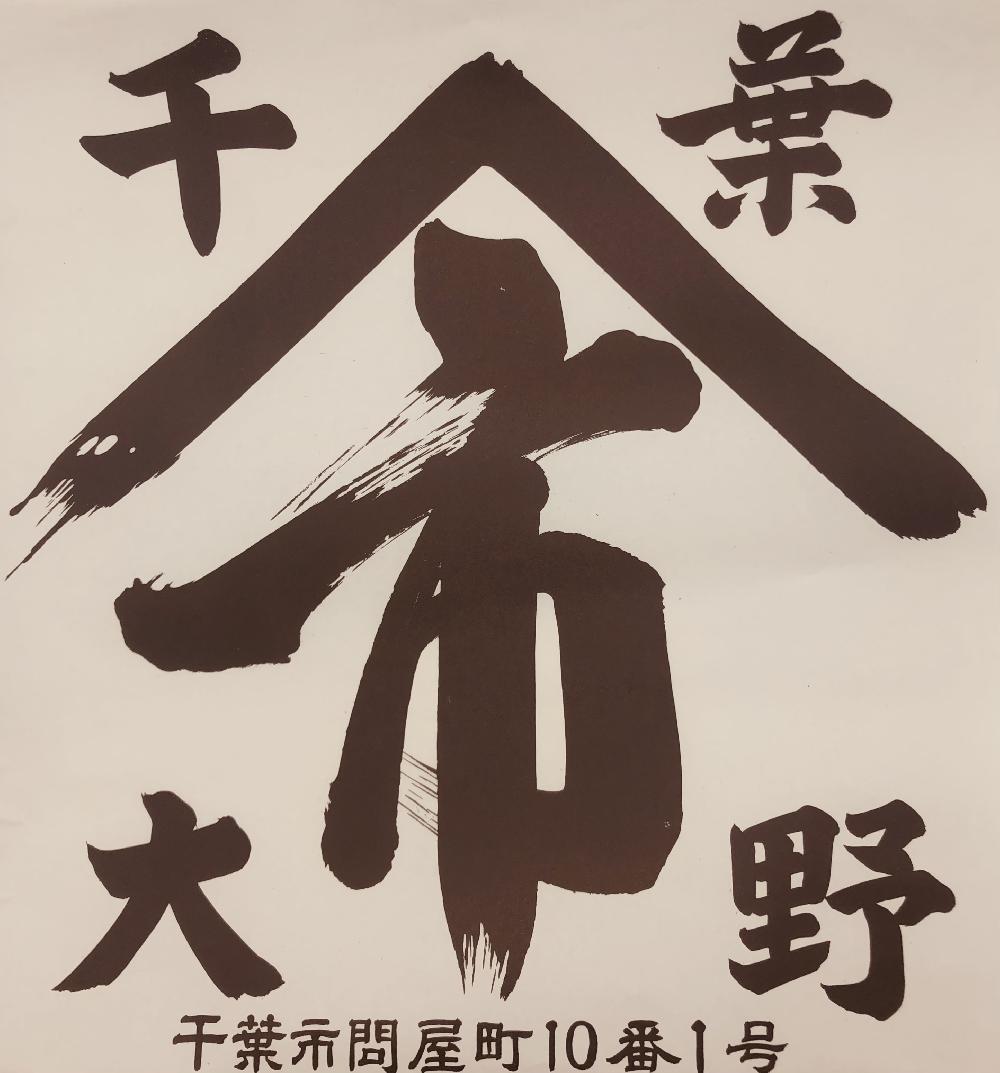 千葉
市
大野
千葉市問屋町10番1号